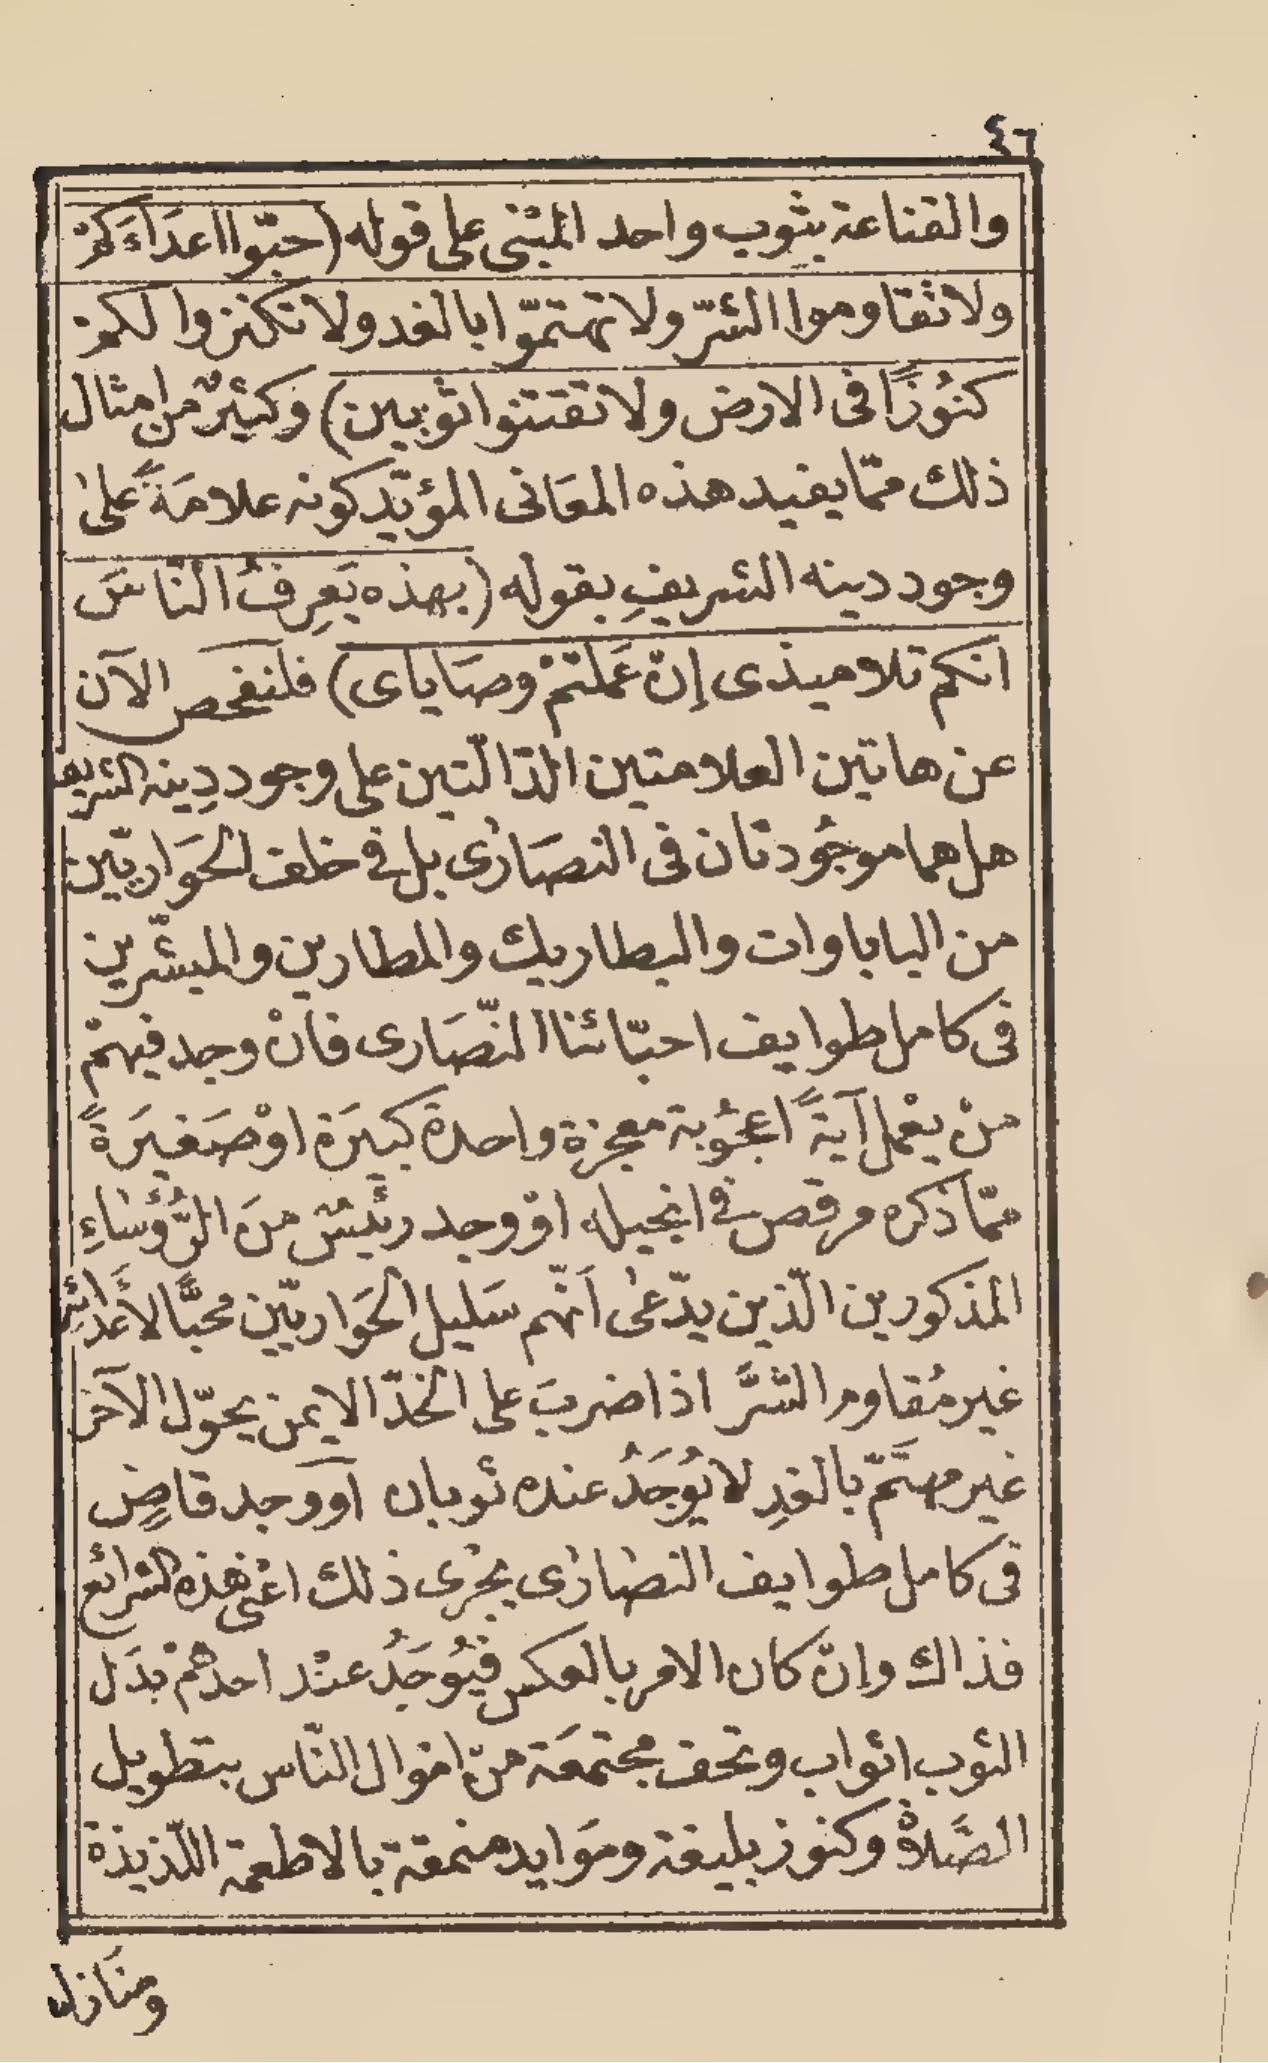 ٤٦
والقناعة بثوب واحد المبنى على قوله (حبّوا اعدَاءَكمْ
ولا تقاوموا الشرّ ولا تهتمّوا بالغد ولا تكنزوا لكمْ
كنُوزًا فى الارض ولا تقتنوا ثوبين) وكثيرٌ من امثال
ذلك ممّا يفيد هذه المعَانى المؤيّد كونه علامَةً علىٰ
وجود دينه الشريفِ بقوله (بهذه يَعرِفُ النّاسَ
انكم تلاميذى إنّ عَملتمْ وصَاياى) فلنفحص الآن
عن هاتين العلامتين الدّالّتين على وجود دِينه الشريف
هل هما موجُودتان فى النصَارٰى بل فى خلف الحَواريّين
من الباباوات والبطاريك والمطارين والمبشّرين
فى كامل طوايف احبّائنا النّصَارى فانْ وجد فيهمْ
منْ يعْمل آيةً اعجُوبة معجزة واحدة كبيَرَة اوْ صَغيَرَةً
ممّا ذكره مرقص فى انجيله اوْ وجد رئيسٌ منَ الرُّؤسَاءِ
المذكورين الّذين يدّعٰى اَنّهم سَليل الحَواريّين محبًّا لأعدَائهِ
غير مُقاوم الشَّرَّ اذا ضربَ على الخدّ الايمن يحوّل الآخر
غير مهتَمّ بالغدِ لا يُوجَدُ عنده ثوبان آو وجد قاضٍ
فى كامل طوايف النصَارٰى يجرى ذلك اعْنى هذه الشرائع
فذاك وإنّ كان الامر بالعكس فيُوجَدُ عنْد احدهمْ بدَل
الثوب اثواب وتحف مجتمعَة منْ اموال النّاس بتطويل
الصَّلاةْ وكنوز بليغة ومَوايد منمقة بالاطعمة اللّذيذة
ومنَازل